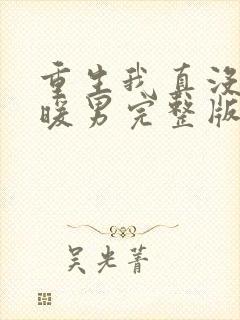 重生我真没
暖男完整版
吴光菁